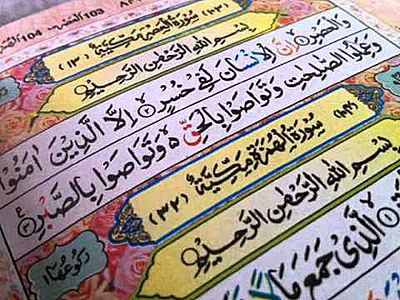 العصر 103 104
(١٠٣) سُوْرَةُ الْعَصْرِ مَكِّيَّةٌ (١٣)
بِسْمِ اللهِ الرَّحْمٰنِ الرَّحِيْمِ
وَالْعَصْرِ ١ اِنَّ الْاِنْسَانَ لَفِيْ خُسْرٍ ٢ اِلَّا الَّذِيْنَ اٰمَنُوْا
وَعَمِلُوا الصّٰلِحٰتِ وَتَوَاصَوْا بِالْحَقِّ ۵ وَتَوَاصَوْا بِالصَّبْرِ ٣
(١٠٤) سُوْرَةُ الْهُمَزَةِ مَكِّيَّةٌ (٣٢)
بِسْمِ اللهِ الرَّحْمٰنِ الرَّحِيْمِ
رکوعها ١
الَّذِيْ جَمَعَ مَا